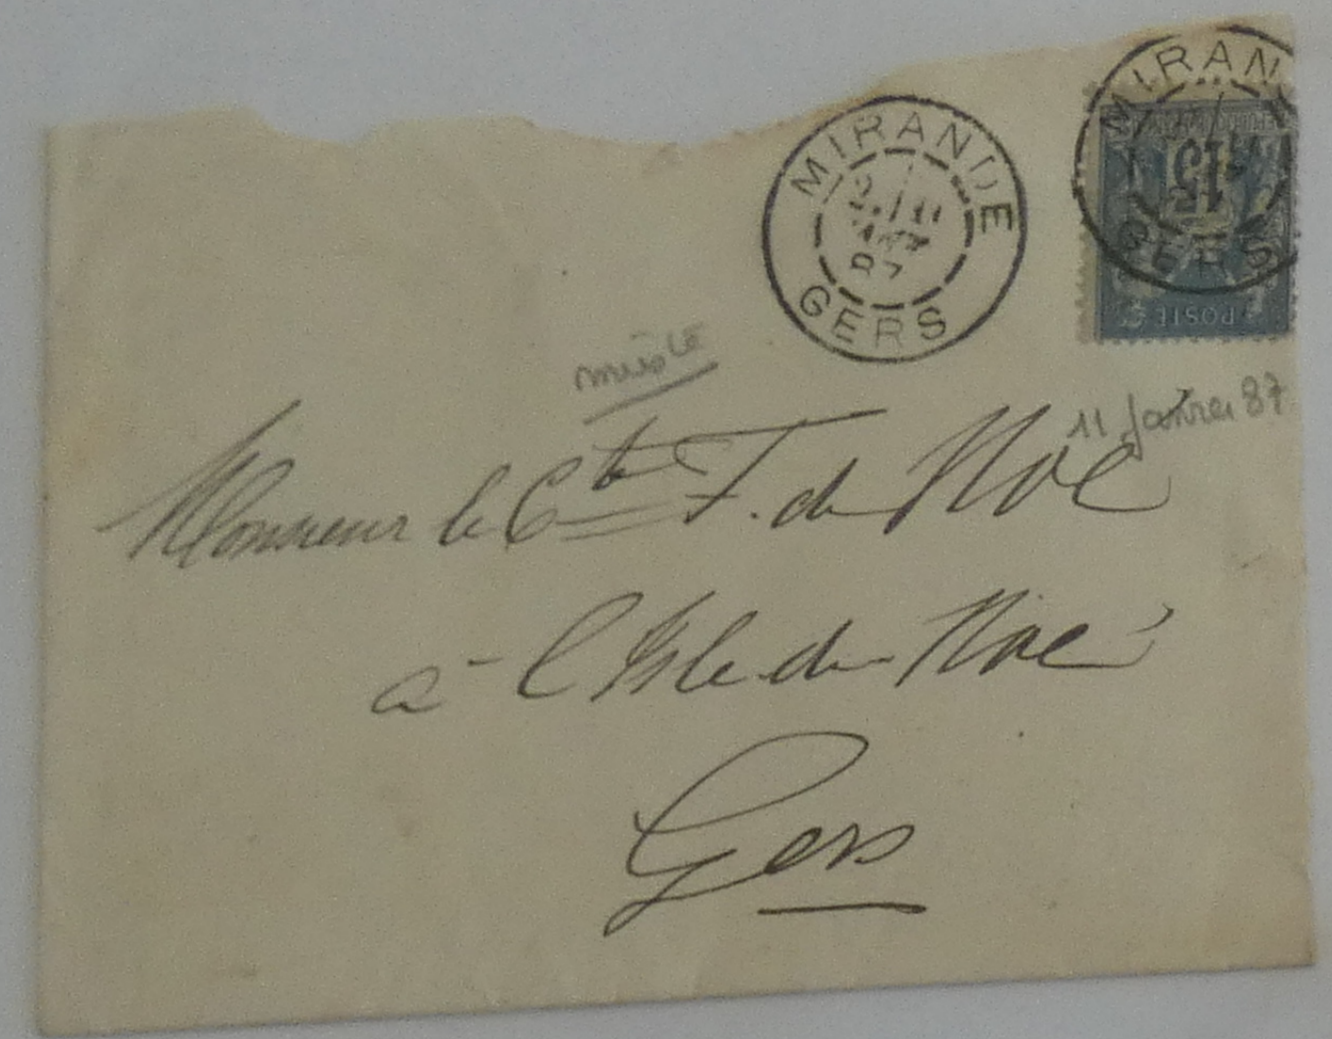 MIRANDE
87
GERS
MIRAN
GERS
15
POSTE
11 Janvier 87
Monsieur le Cte F. de Noé
à l'Isle de Noé
Gers